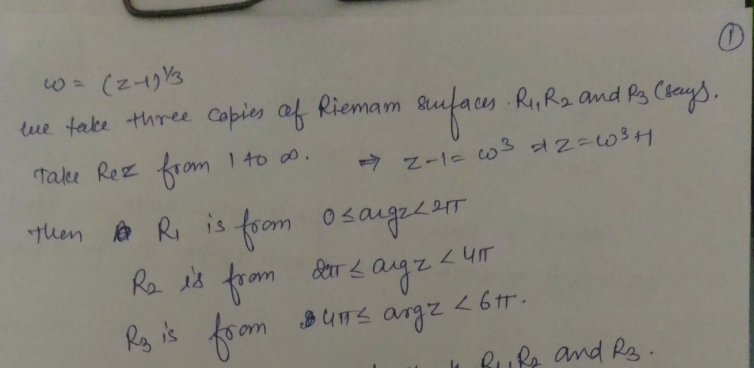 ①
w = (z-1)^1/3
we take three copies of Riemann surfaces. R1, R2 and R3 (say).
Take Rez from 1 to ∞. ⇒ z-1 = w^3 ⇒ z = w^3+1
Then R1 is from 0 ≤ argz < 2π
R2 is from 2π ≤ argz < 4π
R3 is from 4π ≤ argz < 6π.
R1, R2 and R3.